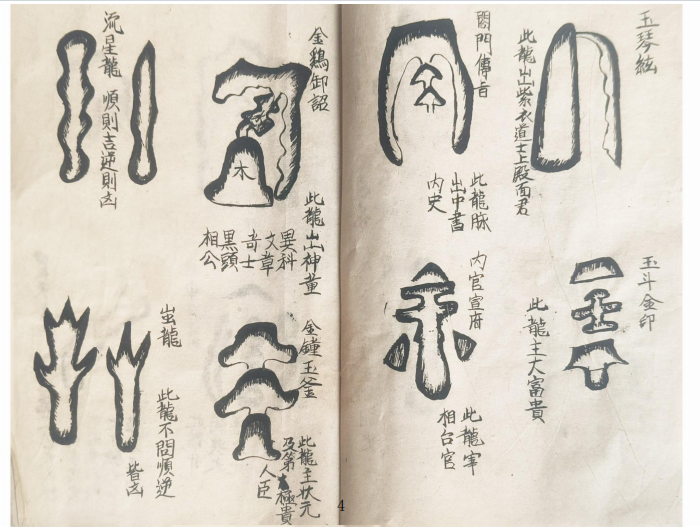 玉琴絃
此龍出紫衣道士上殿面君
閤門傳音
此龍脉
出中書
内史
玉斗金印
此龍主大富貴
内官宣府
此龍宰
相台官
金鷄卸詔
木
此龍出神童
異科
文章
奇士
黑頭
相公
流星龍 順則吉逆則凶
金鐘玉釜
此龍主狀元
及第 極貴
人臣
出龍
此龍不問順逆
皆凶
4